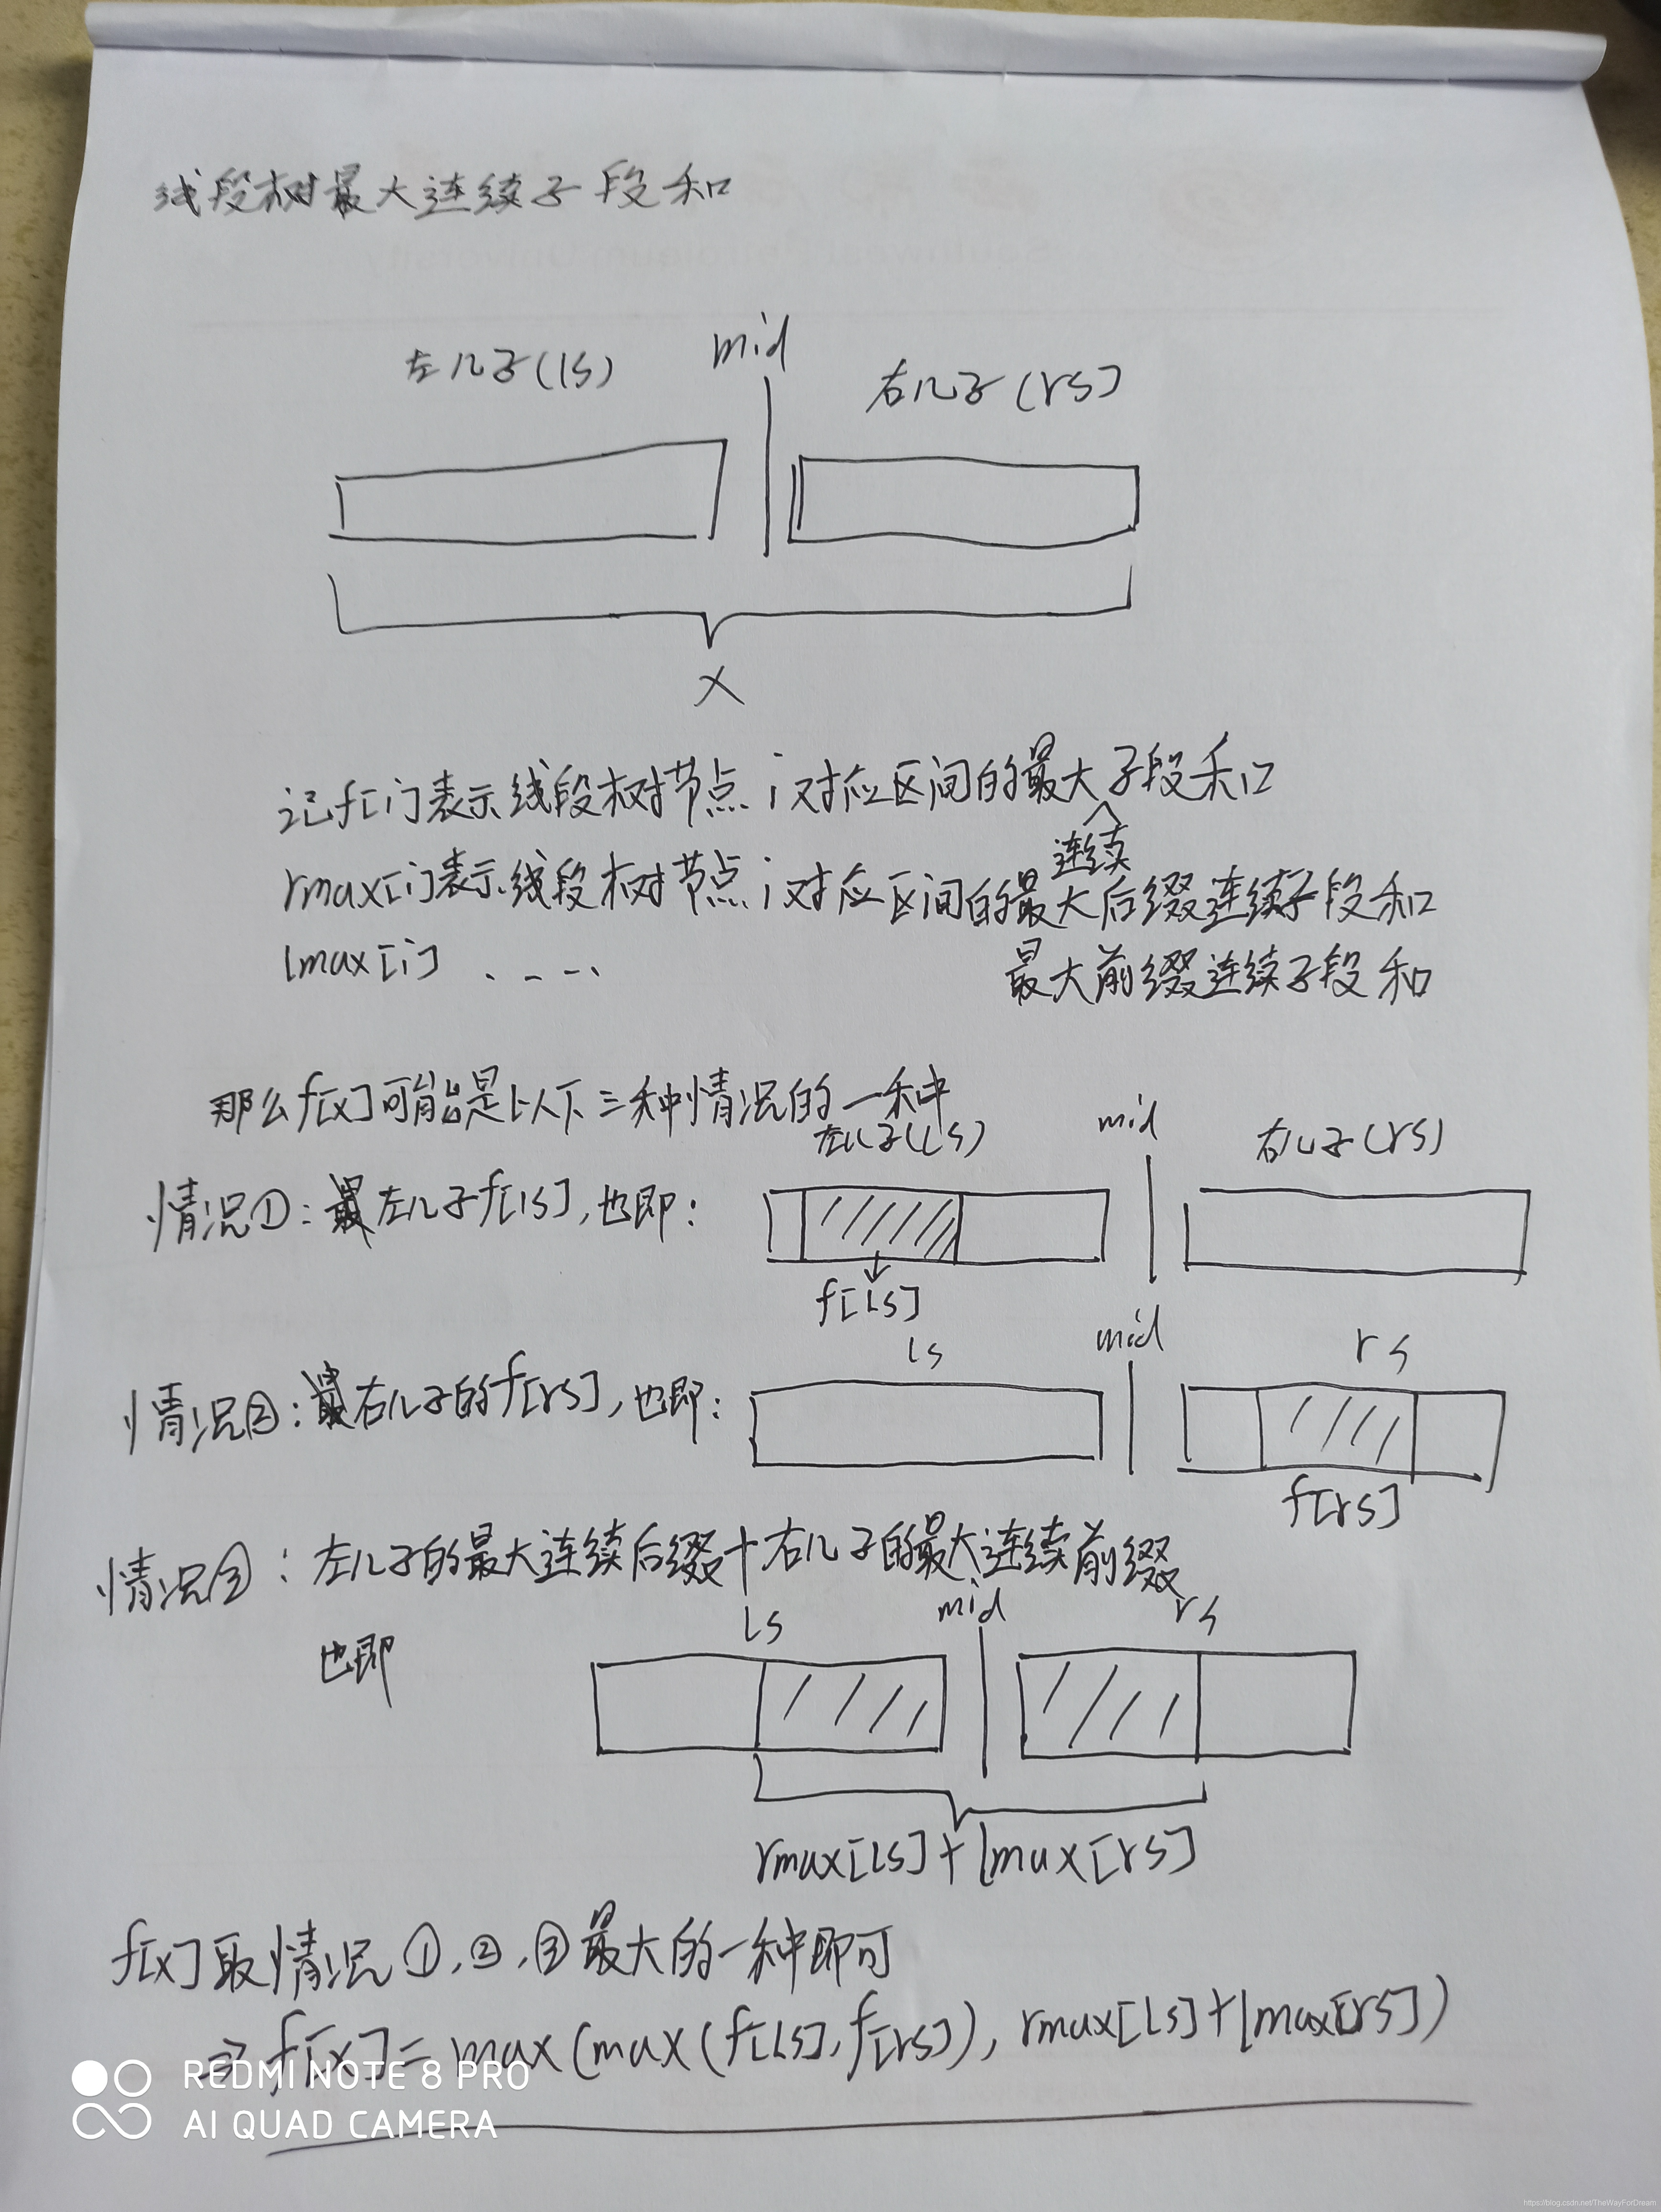 线段树最大连续子段和
左儿子(ls) mid 右儿子(rs)
x
记f[i]表示线段树节点i对应区间的最大子段和
连续
rmax[i]表示线段树节点i对应区间的最大后缀连续子段和
lmax[i] ..... 最大前缀连续子段和
那么f[x]可能是以下三种情况的一种
左儿子(ls) mid 右儿子(rs)
情况①: 左儿子f[ls],也即:
f[ls]
ls mid rs
情况②: 右儿子的f[rs],也即:
f[rs]
情况③: 左儿子的最大连续后缀+右儿子的最大连续前缀
ls mid rs
也即
rmax[ls]+lmax[rs]
f[x]取情况①,②,③最大的一种即可
⇒ f[x]=max(max(f[ls],f[rs]),rmax[ls]+lmax[rs])
REDMI NOTE 8 PRO
AI QUAD CAMERA
https://blog.csdn.net/TheWayForDream